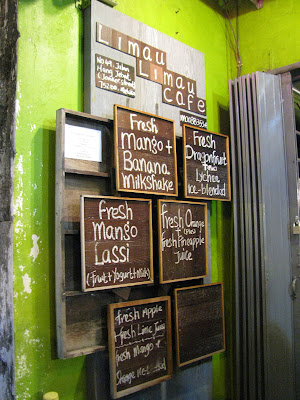 Limau
Limau
Cafe
No 49, Jalan
Hang Jebat
75200, Melaka
Fresh
Mango +
Banana
Milkshake
Fresh
Dragonfruit
Lychee
ice-blended
Fresh
Mango
Lassi
(Fruit + Yogurt + Milk)
Fresh Orange
Fresh Pineapple
Juice
Fresh Apple
+ Fresh Lime Juice
Fresh Mango +
Orange